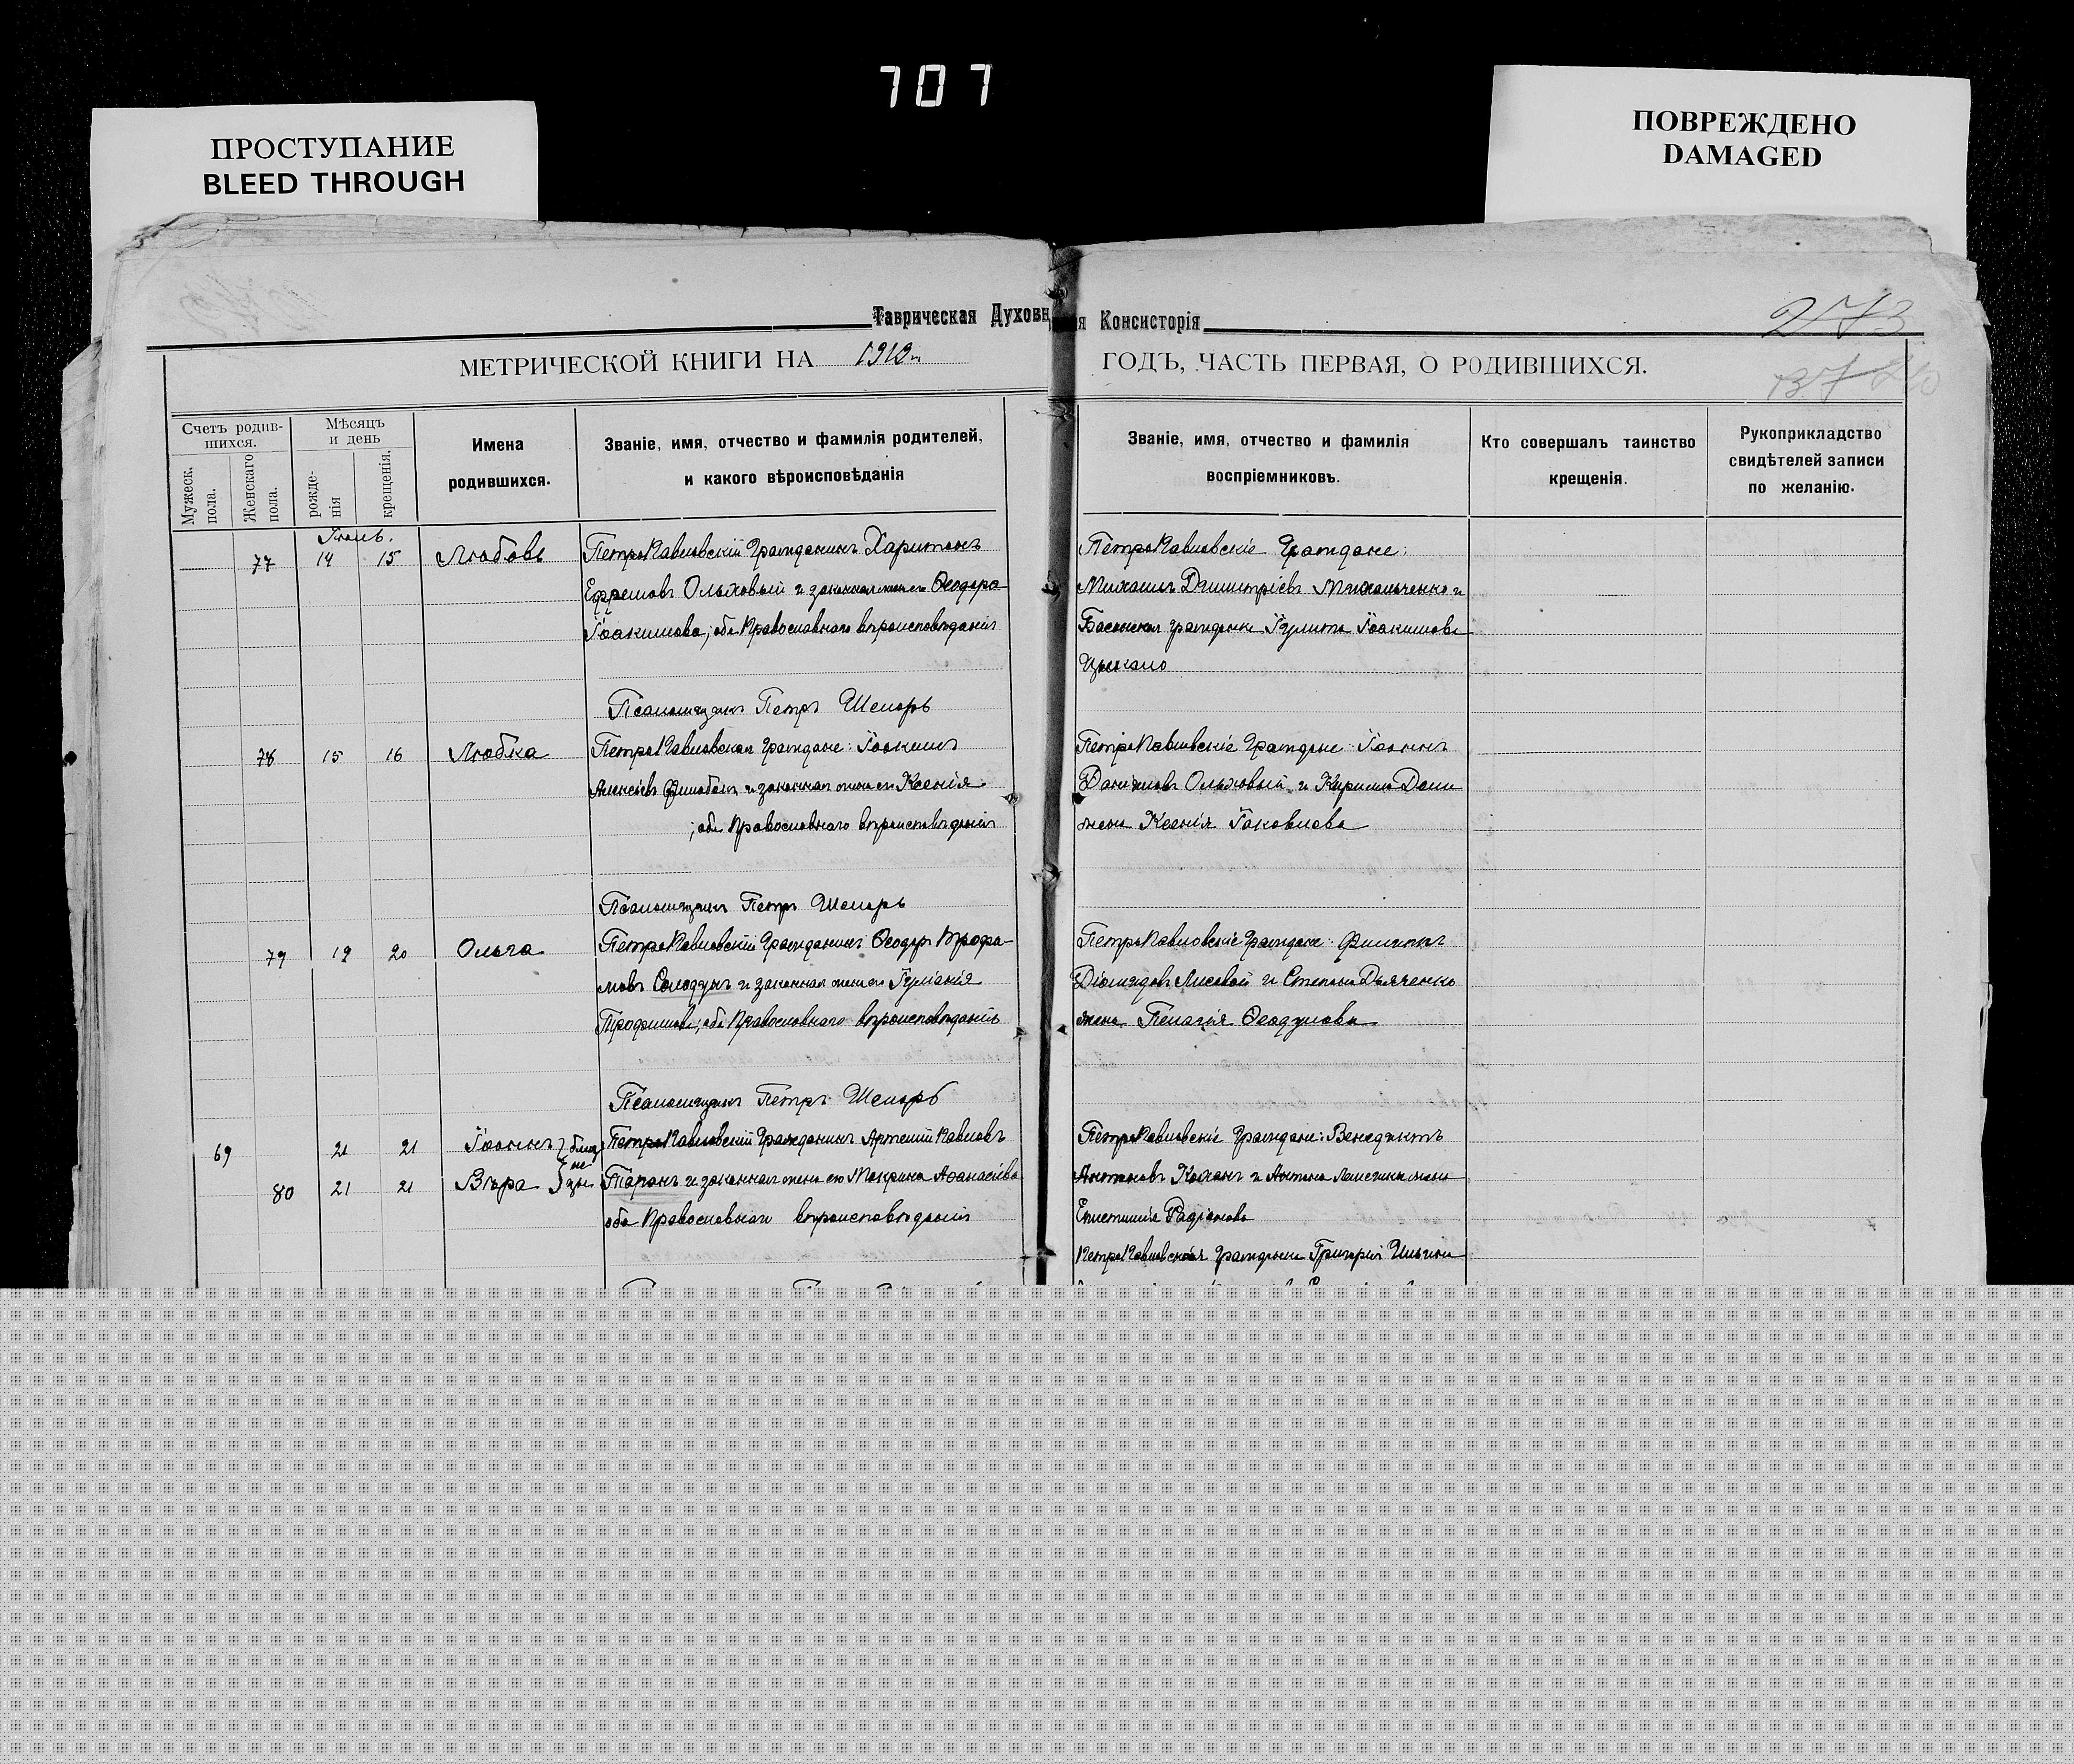 707
ПРОСТУПАНИЕ
BLEED THROUGH
ПОВРЕЖДЕНО
DAMAGED
Таврическая Духовн я Консисторія
273
МЕТРИЧЕСКОЙ КНИГИ НА 1919 ГОДЪ, ЧАСТЬ ПЕРВАЯ, О РОДИВШИХСЯ.
Счетъ родив-
шихся.
Мужеск.
пола.
Женскаго
пола.
Мѣсяцъ
и день
рожде-
нія
крещенія.
Имена
родившихся.
Званіе, имя, отчество и фамилія родителей,
и какого вѣроисповѣданія
Званіе, имя, отчество и фамилія
воспріемниковъ.
Кто совершалъ таинство
крещенія.
Рукоприкладство
свидѣтелей записи
по желанію.
77 14 15 Любовь
ПетроПавловскій Гражданинъ Харитонъ
Ефремовъ Ольховый и законная жена его Ѳеодора
Іоакимова, оба Православнаго вѣроисповѣданія
ПетроПавловскіе Граждане:
Михаилъ Димитріевъ Михальченко и
гражданка Іулита Іоакимова
Псаломщикъ Петръ
78 15 16 Любка
ПетроПавловская Граждане: Іоакимъ
Алексѣевъ и законная жена его Ксенія
; оба Православнаго вѣроисповѣданія
ПетроПавловскіе Граждане: Іоаннъ
Даніиловъ Ольховый и Кирилла
жена Ксенія Іаковлева
Псаломщикъ Петръ
79 19 20 Ольга
ПетроПавловскій Гражданинъ Ѳеодоръ
Солодунъ и законная жена его Іуліанія
Трофимова, оба Православнаго вѣроисповѣданія
ПетроПавловскіе Граждане: Филиппъ
Діомидовъ Лисовой и Степана Дьяченко
жена Пелагія
Псаломщикъ Петръ
69 21 21 Іоаннъ близ
не
80 21 21 Вѣра цы
ПетроПавловскій Гражданинъ Артемій Павловъ
Таранъ и законная жена его Макрина Аѳанасіева
оба Православнаго вѣроисповѣданія
ПетроПавловскіе Граждане: Венедиктъ
Антоновъ Коханъ и Антона жена
Епистимія Родіонова
ПетроПавловская граждане Григорій